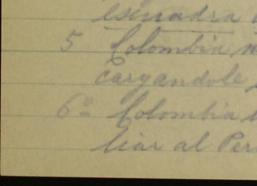 escuadra
5 Colombia
cargandole
6º Colombia
liar al Per